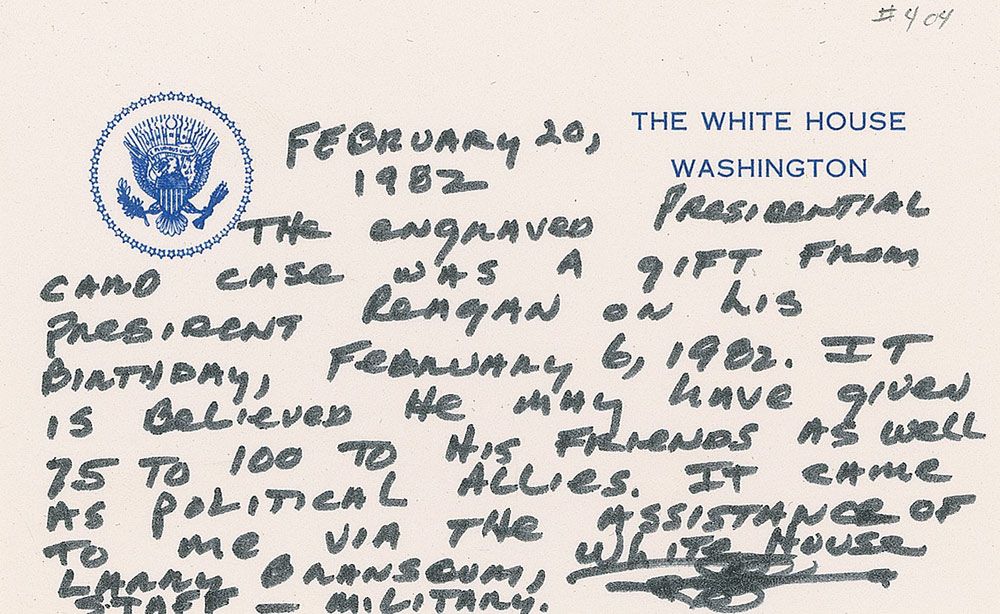 #404
THE WHITE HOUSE
WASHINGTON
FEBRUARY 20,
1982
THE ENGRAVED PRESIDENTIAL
CARD CASE WAS A GIFT FROM
PRESIDENT REAGAN ON HIS
BIRTHDAY, FEBRUARY 6, 1982. IT
IS BELIEVED HE MAY HAVE GIVEN
75 TO 100 TO HIS FRIENDS AS WELL
AS POLITICAL ALLIES. IT CAME
TO ME VIA THE ASSISTANCE OF
LARRY BRANSCUM, WHITE HOUSE
STAFF — MILITARY.